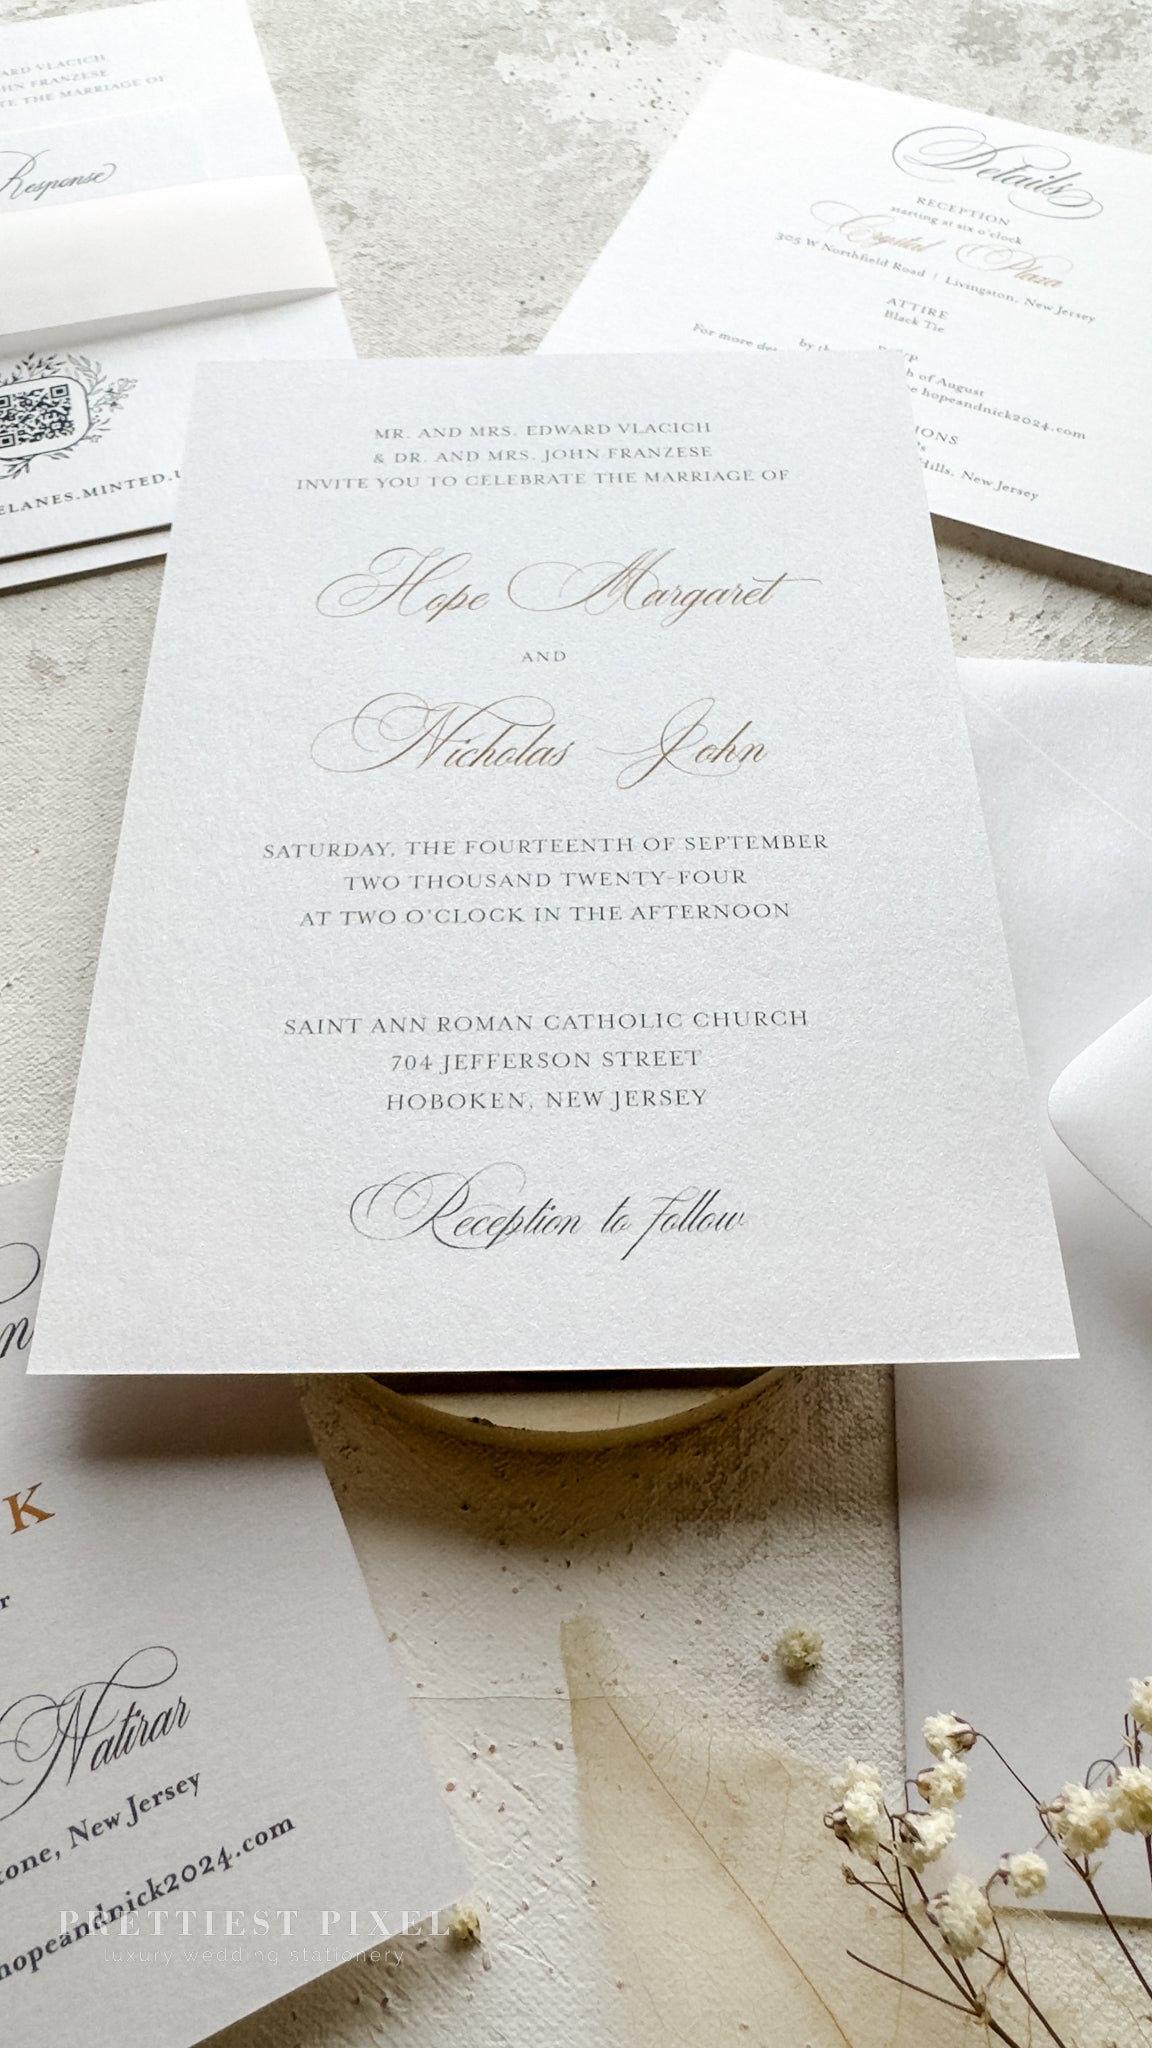 VLACICH
JOHN FRANZESE
THE MARRIAGE OF
Response
MINTED.
Details
RECEPTION
starting at six o'clock
Crystal Plaza
305 W Northfield Road | Livingston, New Jersey
ATTIRE
Black Tie
For more
of August
hopeandnick2024.com
Hills, New Jersey
MR. AND MRS. EDWARD VLACICH
& DR. AND MRS. JOHN FRANZESE
INVITE YOU TO CELEBRATE THE MARRIAGE OF
Hope Margaret
AND
Nicholas John
SATURDAY, THE FOURTEENTH OF SEPTEMBER
TWO THOUSAND TWENTY-FOUR
AT TWO O'CLOCK IN THE AFTERNOON
SAINT ANN ROMAN CATHOLIC CHURCH
704 JEFFERSON STREET
HOBOKEN, NEW JERSEY
Reception to follow
K
Natirar
New Jersey
hopeandnick2024.com
PRETTIEST PIXEL
luxury wedding stationery